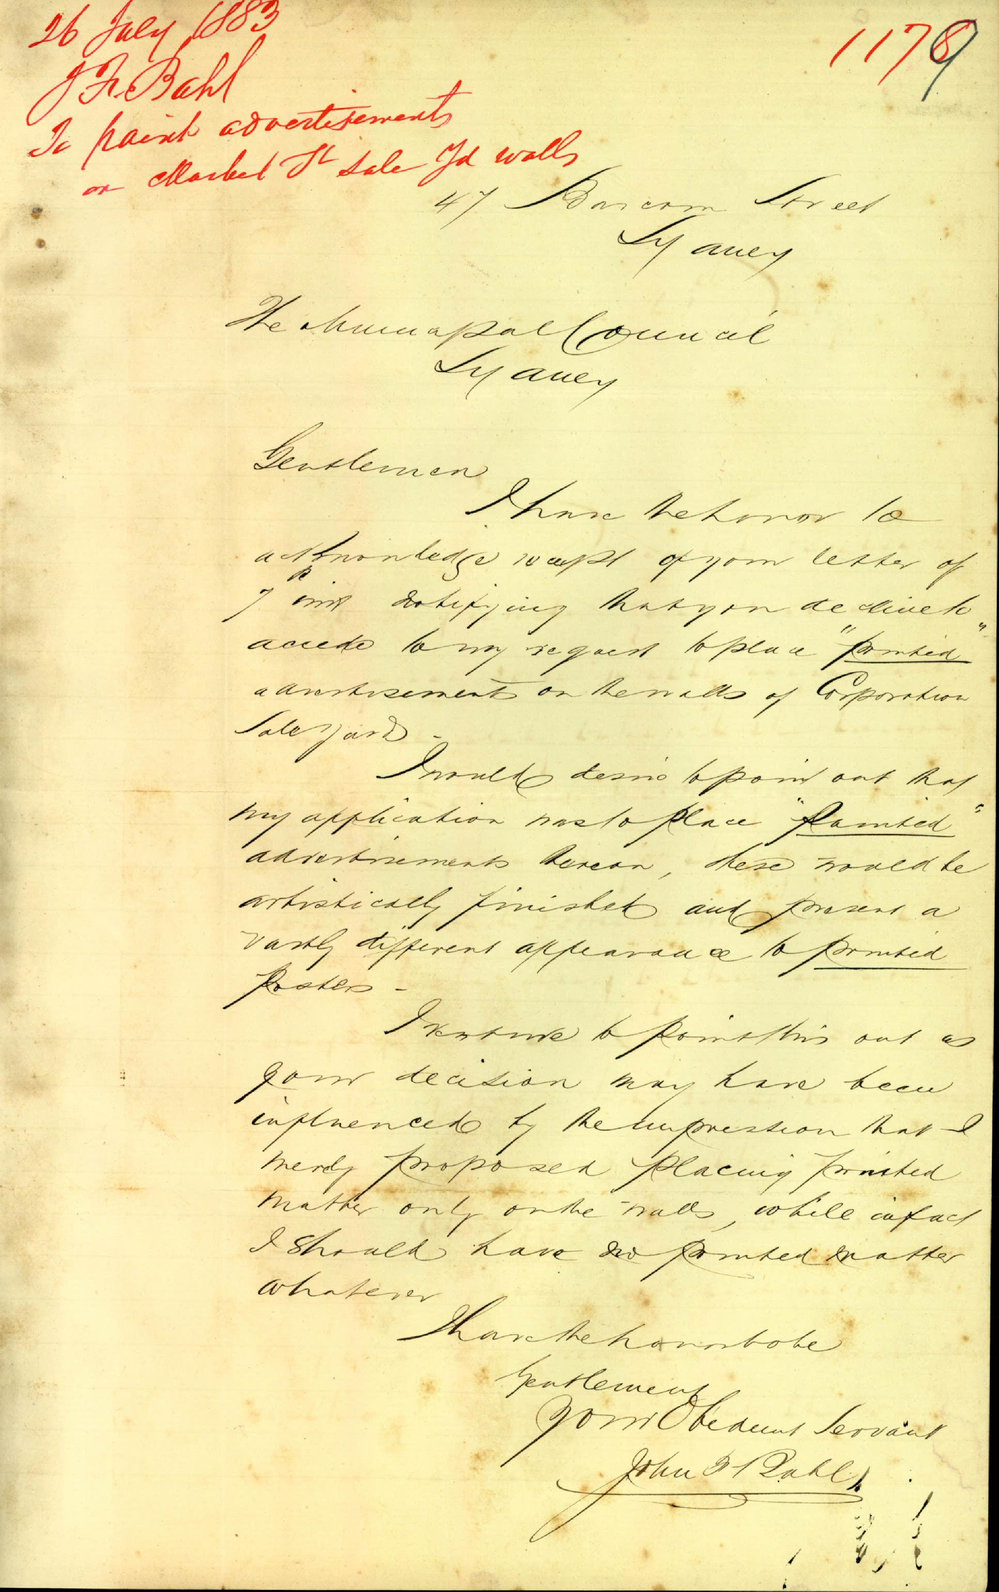 26 July 1883
J F. Bahl
To paint advertisements
on Market St Sale Yd walls
1179
47 Barcom Street
Sydney
The Municipal Council
Sydney
Gentlemen
I have the honor to
acknowledge receipt of your letter of
7th inst notifying that you decline to
accede to my request to place "printed"
advertisements on the walls of Corporation
Sale Yards -
I would desire to point out that
my application was to place "painted"
advertisements thereon, these would be
artistically finished and present a
vastly different appearance to printed
posters -
I venture to point this out as
your decision may have been
influenced by the impression that I
merely proposed placing printed
matter only on the walls, while in fact
I should have no printed matter
whatever
I have the honor to be
Gentlemen
Your Obedient Servant
John F Bahl